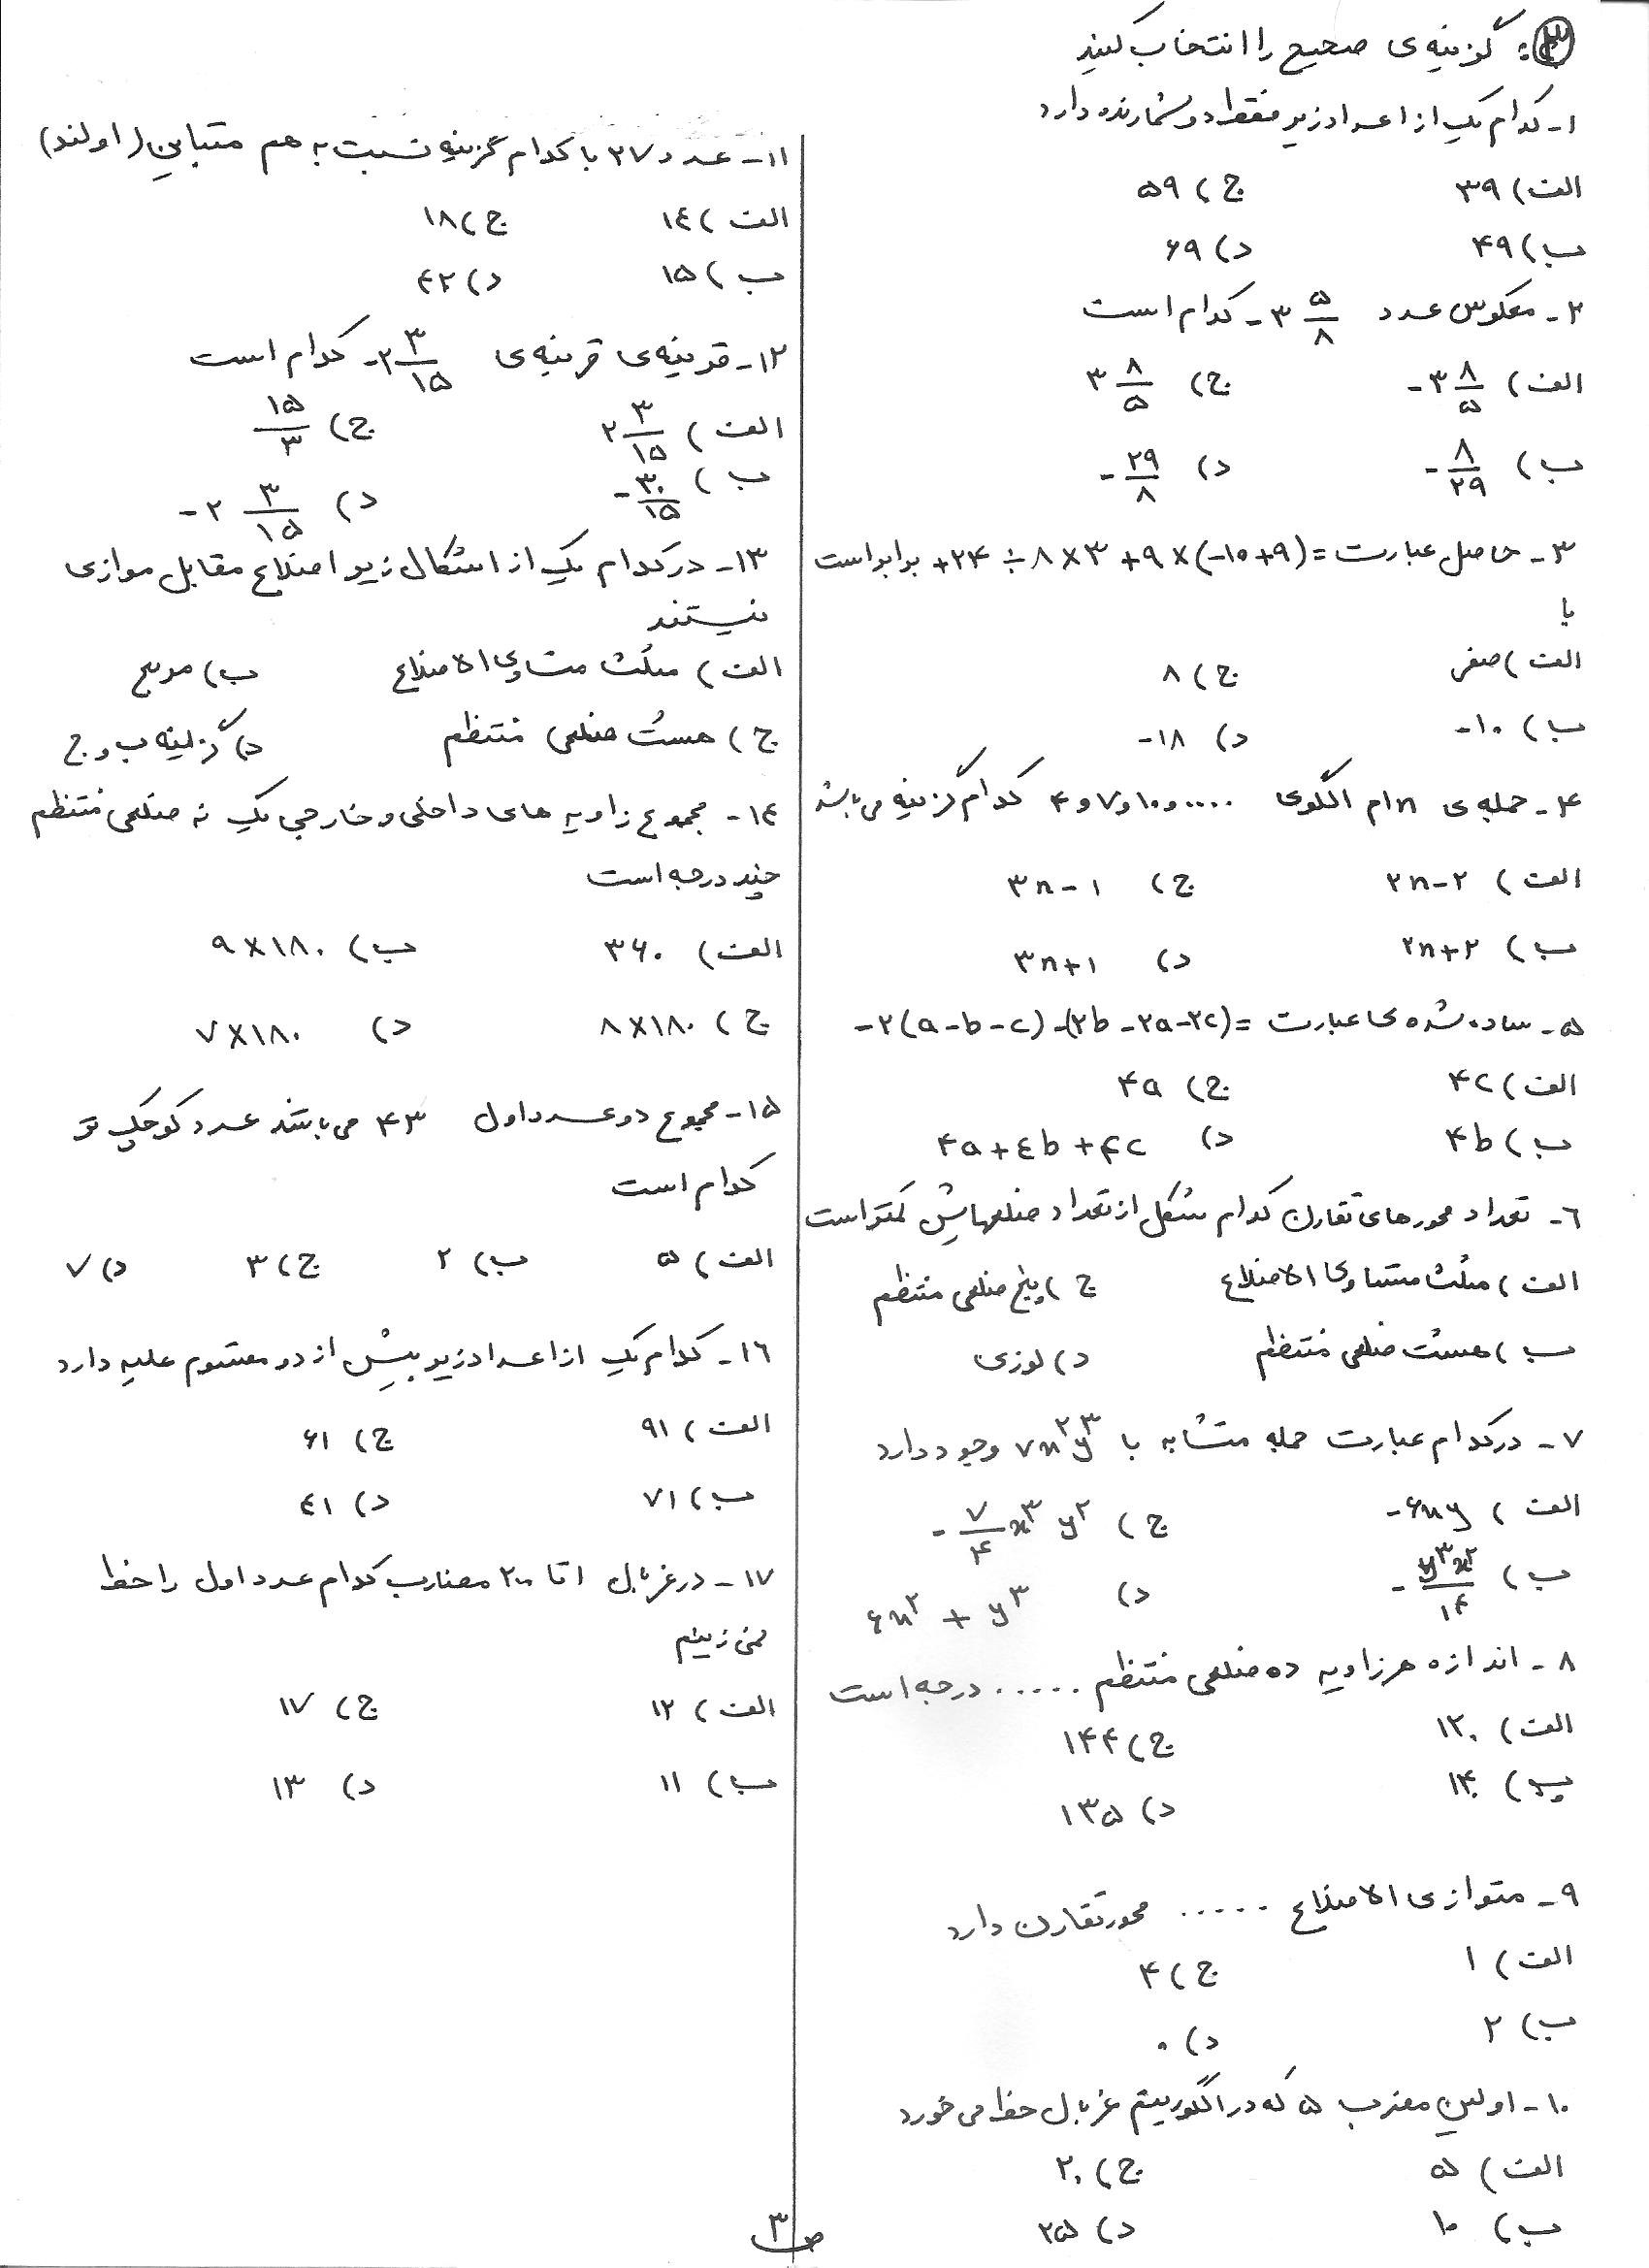 ۳: گزینه‌ی صحیح را انتخاب کنید
۱- کدام یک از اعداد زیر فقط دو شمارنده دارد
الف) ۳۹ ج) ۵۹
ب) ۴۹ د) ۶۹
۲- معکوس عدد -۳ ۵/۸ کدام است
الف) -۳ ۸/۵ ج) ۳ ۸/۵
ب) -۸/۲۹ د) -۲۹/۸
۳- حاصل عبارت = +۲۴ ÷ ۸ × ۳ + ۹ × (-۱۰+۹) برابر است
با
الف) صفر ج) ۸
ب) -۱۰ د) -۱۸
۴- جمله‌ی n ام الگوی ۴ و ۷ و ۱۰ و .... کدام گزینه می باشد
الف) ۲n-۲ ج) ۳n-۱
ب) ۲n+۲ د) ۳n+۱
۵- ساده شده ی عبارت = -۲(a-b-c)-(۲b-۲a-۲c)
الف) ۴c ج) ۴a
ب) ۴b د) ۴a+٤b+۴c
٦- تعداد محورهای تقارن کدام شکل از تعداد ضلعهایش کمتر است
الف) مثلث متساوی الاضلاع ج) پنج ضلعی منتظم
ب) هشت ضلعی منتظم د) لوزی
۷- در کدام عبارت جمله متشابه با ۷x²y³ وجود دارد
الف) -۶xy ج) -۷/۴ x³ y²
ب) -y³x²/۱۴ د) ۶x² + y³
۸- اندازه هر زاویه ده ضلعی منتظم ..... درجه است
الف) ۱۲۰ ج) ۱۴۴
ب) ۱۴۰ د) ۱۳۵
۹- متوازی الاضلاع ..... محور تقارن دارد
الف) ۱ ج) ۴
ب) ۲ د) ۰
۱۰- اولین مضرب ۵ که در الگوریتم غربال خط می خورد
الف) ۵ ج) ۲۰
ب) ۱۰ د) ۲۵
۱۱- عدد ۲۷ با کدام گزینه نسبت به هم متباین (اولند)
الف) ۱٤ ج) ۱۸
ب) ۱۵ د) ٤۲
۱۲- قرینه‌ی قرینه‌ی -۲ ۳/۱۵ کدام است
الف) ۲ ۳/۱۵ ج) ۱۵/۳
ب) -۳۰/۱۵ د) -۲ ۳/۱۵
۱۳- در کدام یک از اشکال زیر اضلاع مقابل موازی
نیستند
الف) مثلث متساوی الاضلاع ب) مربع
ج) هشت ضلعی منتظم د) گزینه ب و ج
۱٤- مجموع زاویه های داخلی و خارجی یک نه ضلعی منتظم
چند درجه است
الف) ۳۶۰ ب) ۹×۱۸۰
ج) ۸×۱۸۰ د) ۷×۱۸۰
۱۵- مجموع دو عدد اول ۴۳ می باشد عدد کوچک تر
کدام است
الف) ۵ ب) ۲ ج) ۳ د) ۷
۱٦- کدام یک از اعداد زیر بیش از دو مقسوم علیه دارد
الف) ۹۱ ج) ۶۱
ب) ۷۱ د) ٤۱
۱۷- در غربال ۱ تا ۲۰۰ مضارب کدام عدد اول را خط
نمی زنیم
الف) ۱۲ ج) ۱۷
ب) ۱۱ د) ۱۳
ص ۳